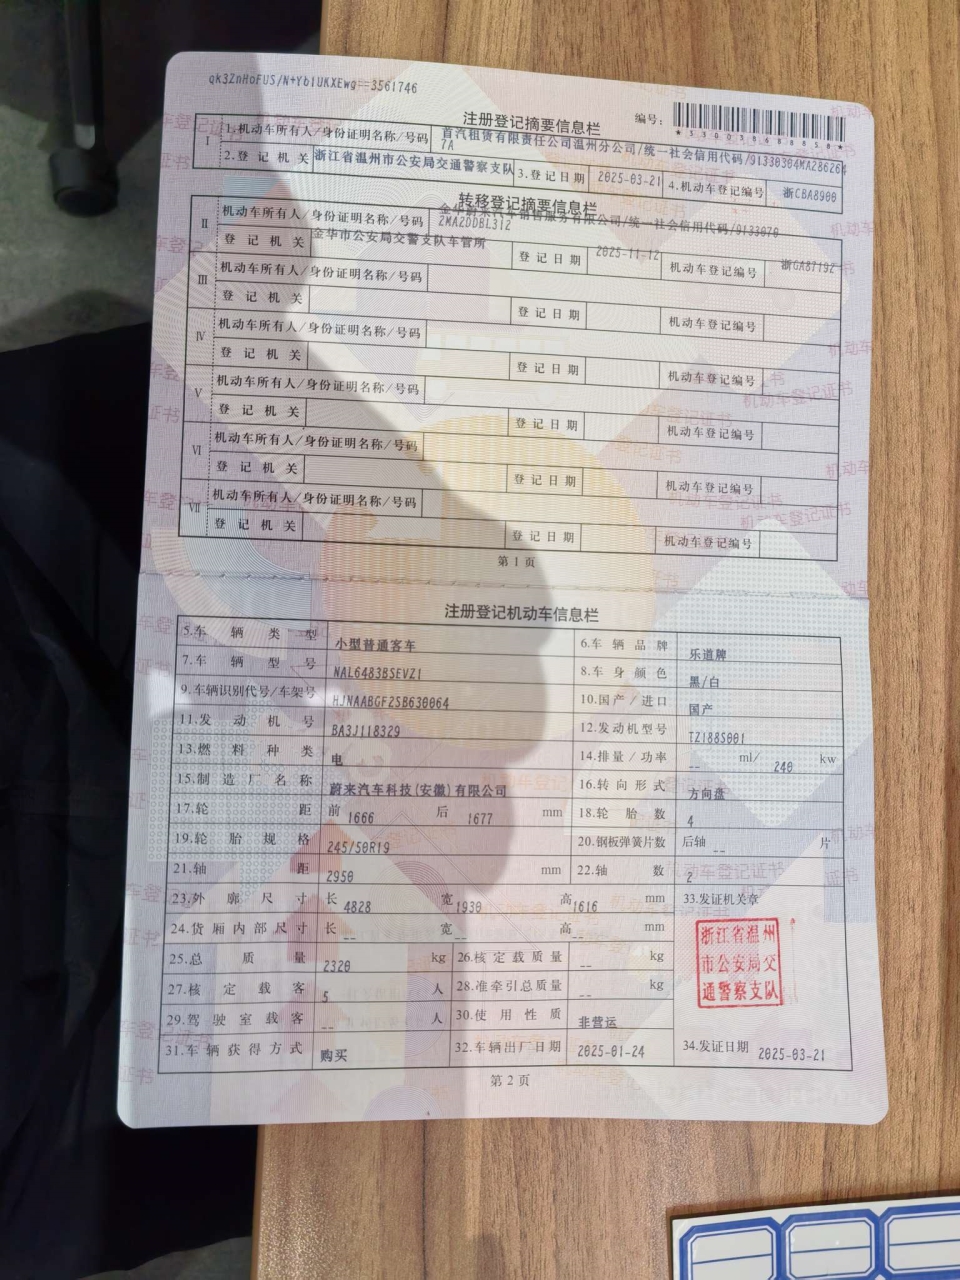 qk3ZnHoFUS/N+Yb1UKXEwg==3561746
注册登记摘要信息栏
编号：
*330038688858*
I
1.机动车所有人/身份证明名称/号码 首汽租赁有限责任公司温州分公司/统一社会信用代码/91330304MA286264
7A
2.登记机关 浙江省温州市公安局交通警察支队 3.登记日期 2025-03-21 4.机动车登记编号 浙CBA8900
转移登记摘要信息栏
II
机动车所有人/身份证明名称/号码 金华蔚来汽车销售服务有限公司/统一社会信用代码/9133070
2MA2DDBL312
登记机关 金华市公安局交警支队车管所 登记日期 2025-11-12 机动车登记编号 浙GA8719Z
III 机动车所有人/身份证明名称/号码
登记机关 登记日期 机动车登记编号
IV 机动车所有人/身份证明名称/号码
登记机关 登记日期 机动车登记编号
V 机动车所有人/身份证明名称/号码
登记机关 登记日期 机动车登记编号
VI 机动车所有人/身份证明名称/号码
登记机关 登记日期 机动车登记编号
VII 机动车所有人/身份证明名称/号码
登记机关 登记日期 机动车登记编号
第 1 页
注册登记机动车信息栏
5.车辆类型 小型普通客车 6.车辆品牌 乐道牌
7.车辆型号 NAL6483BSEVZ1 8.车身颜色 黑/白
9.车辆识别代号/车架号 HJNAABGF2SB630064 10.国产/进口 国产
11.发动机号 BA3J118329 12.发动机型号 TZ188S001
13.燃料种类 电 14.排量/功率 -- ml/ 240 kw
15.制造厂名称 蔚来汽车科技(安徽)有限公司 16.转向形式 方向盘
17.轮距 前 1666 后 1677 mm 18.轮胎数 4
19.轮胎规格 245/50R19 20.钢板弹簧片数 后轴 -- 片
21.轴距 2950 mm 22.轴数 2
23.外廓尺寸 长 4828 宽 1930 高 1616 mm 33.发证机关章
24.货厢内部尺寸 长 -- 宽 -- 高 -- mm
浙江省温州
市公安局交
通警察支队
25.总质量 2320 kg 26.核定载质量 -- kg
27.核定载客 5 人 28.准牵引总质量 -- kg
29.驾驶室载客 -- 人 30.使用性质 非营运
31.车辆获得方式 购买 32.车辆出厂日期 2025-01-24 34.发证日期 2025-03-21
第 2 页